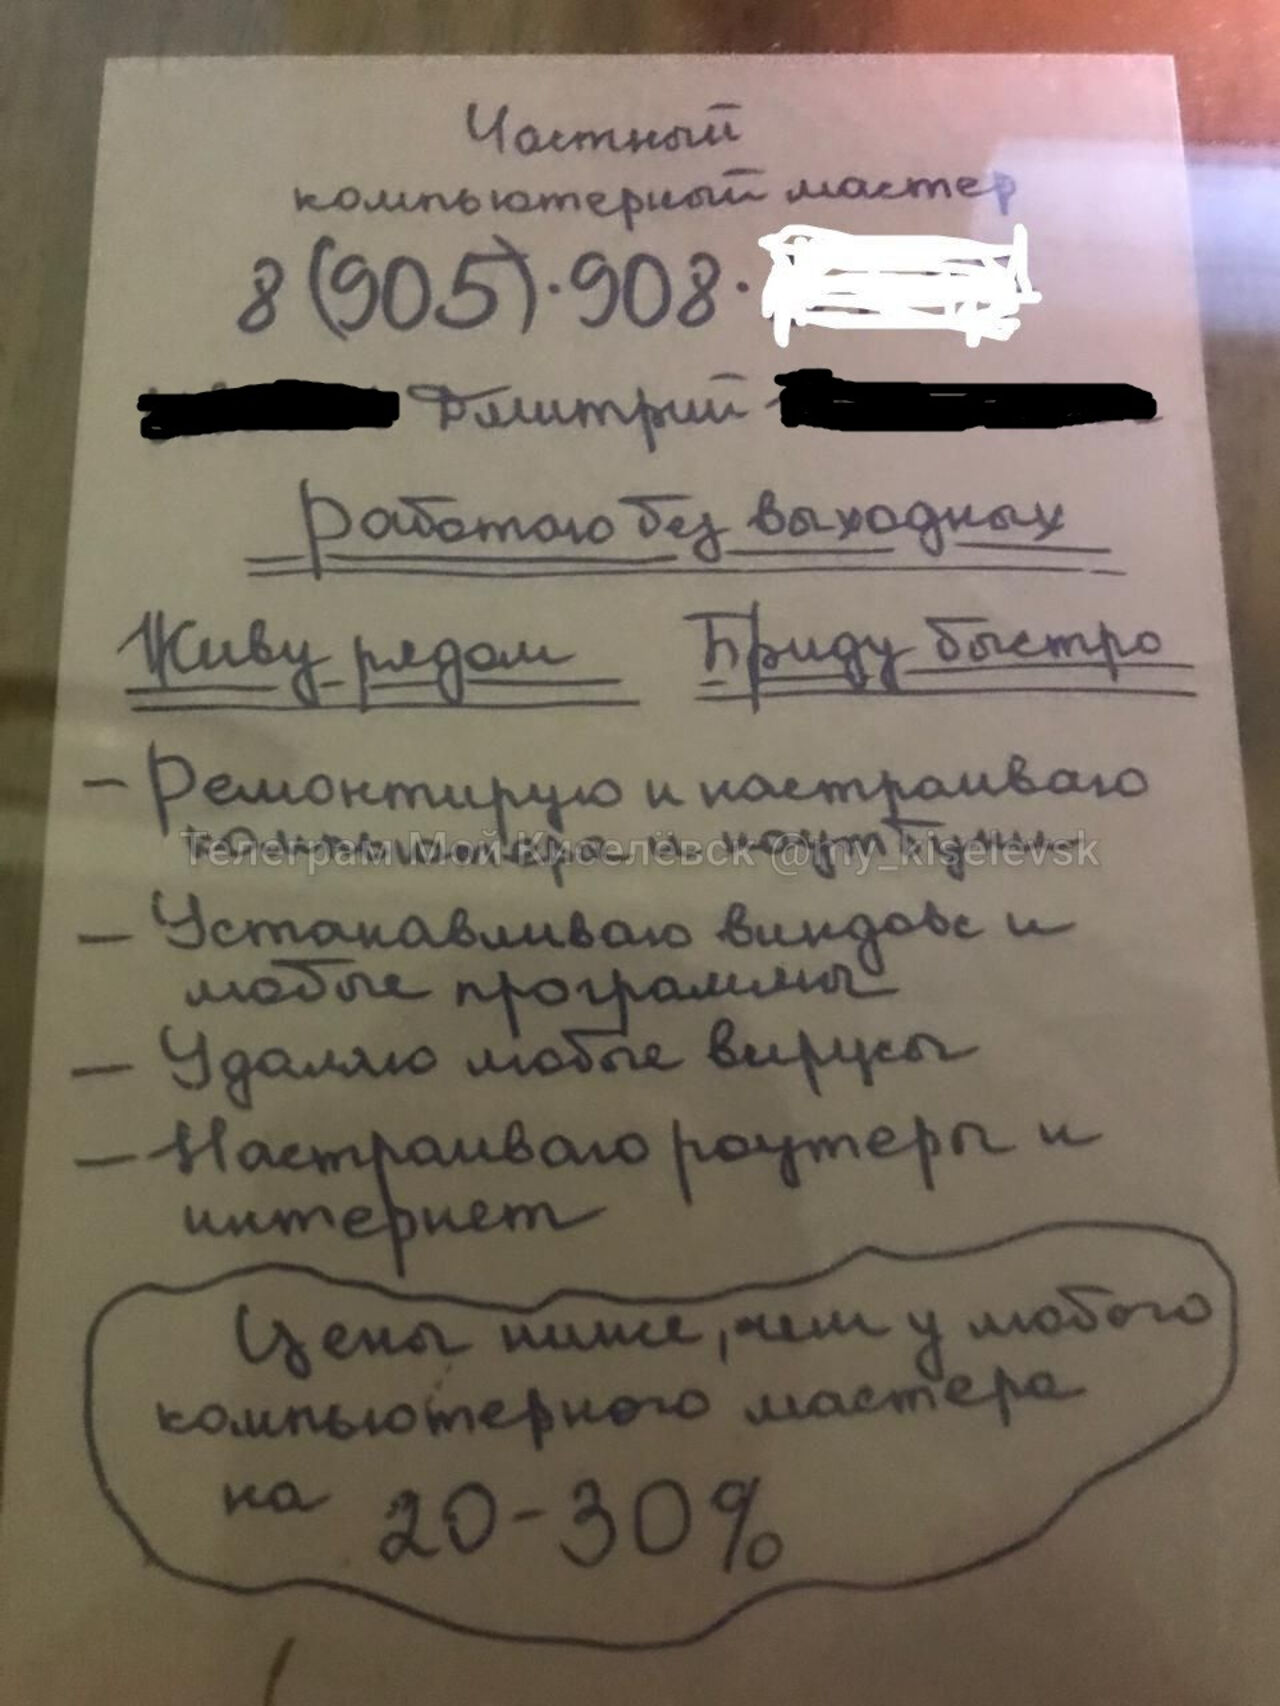 Частный
компьютерный мастер
8(905)·908·
Дмитрий
Работаю без выходных
Живу рядом Приду быстро
- Ремонтирую и настраиваю
компьютера и ноутбуки
Телеграм Мой Киселёвск @my_kiselevsk
- Устанавливаю виндовс и
любые программы
- Удаляю любые вирусы
- Настраиваю роутеры и
интернет
Цены ниже, чем у любого
компьютерного мастера
на 20-30%